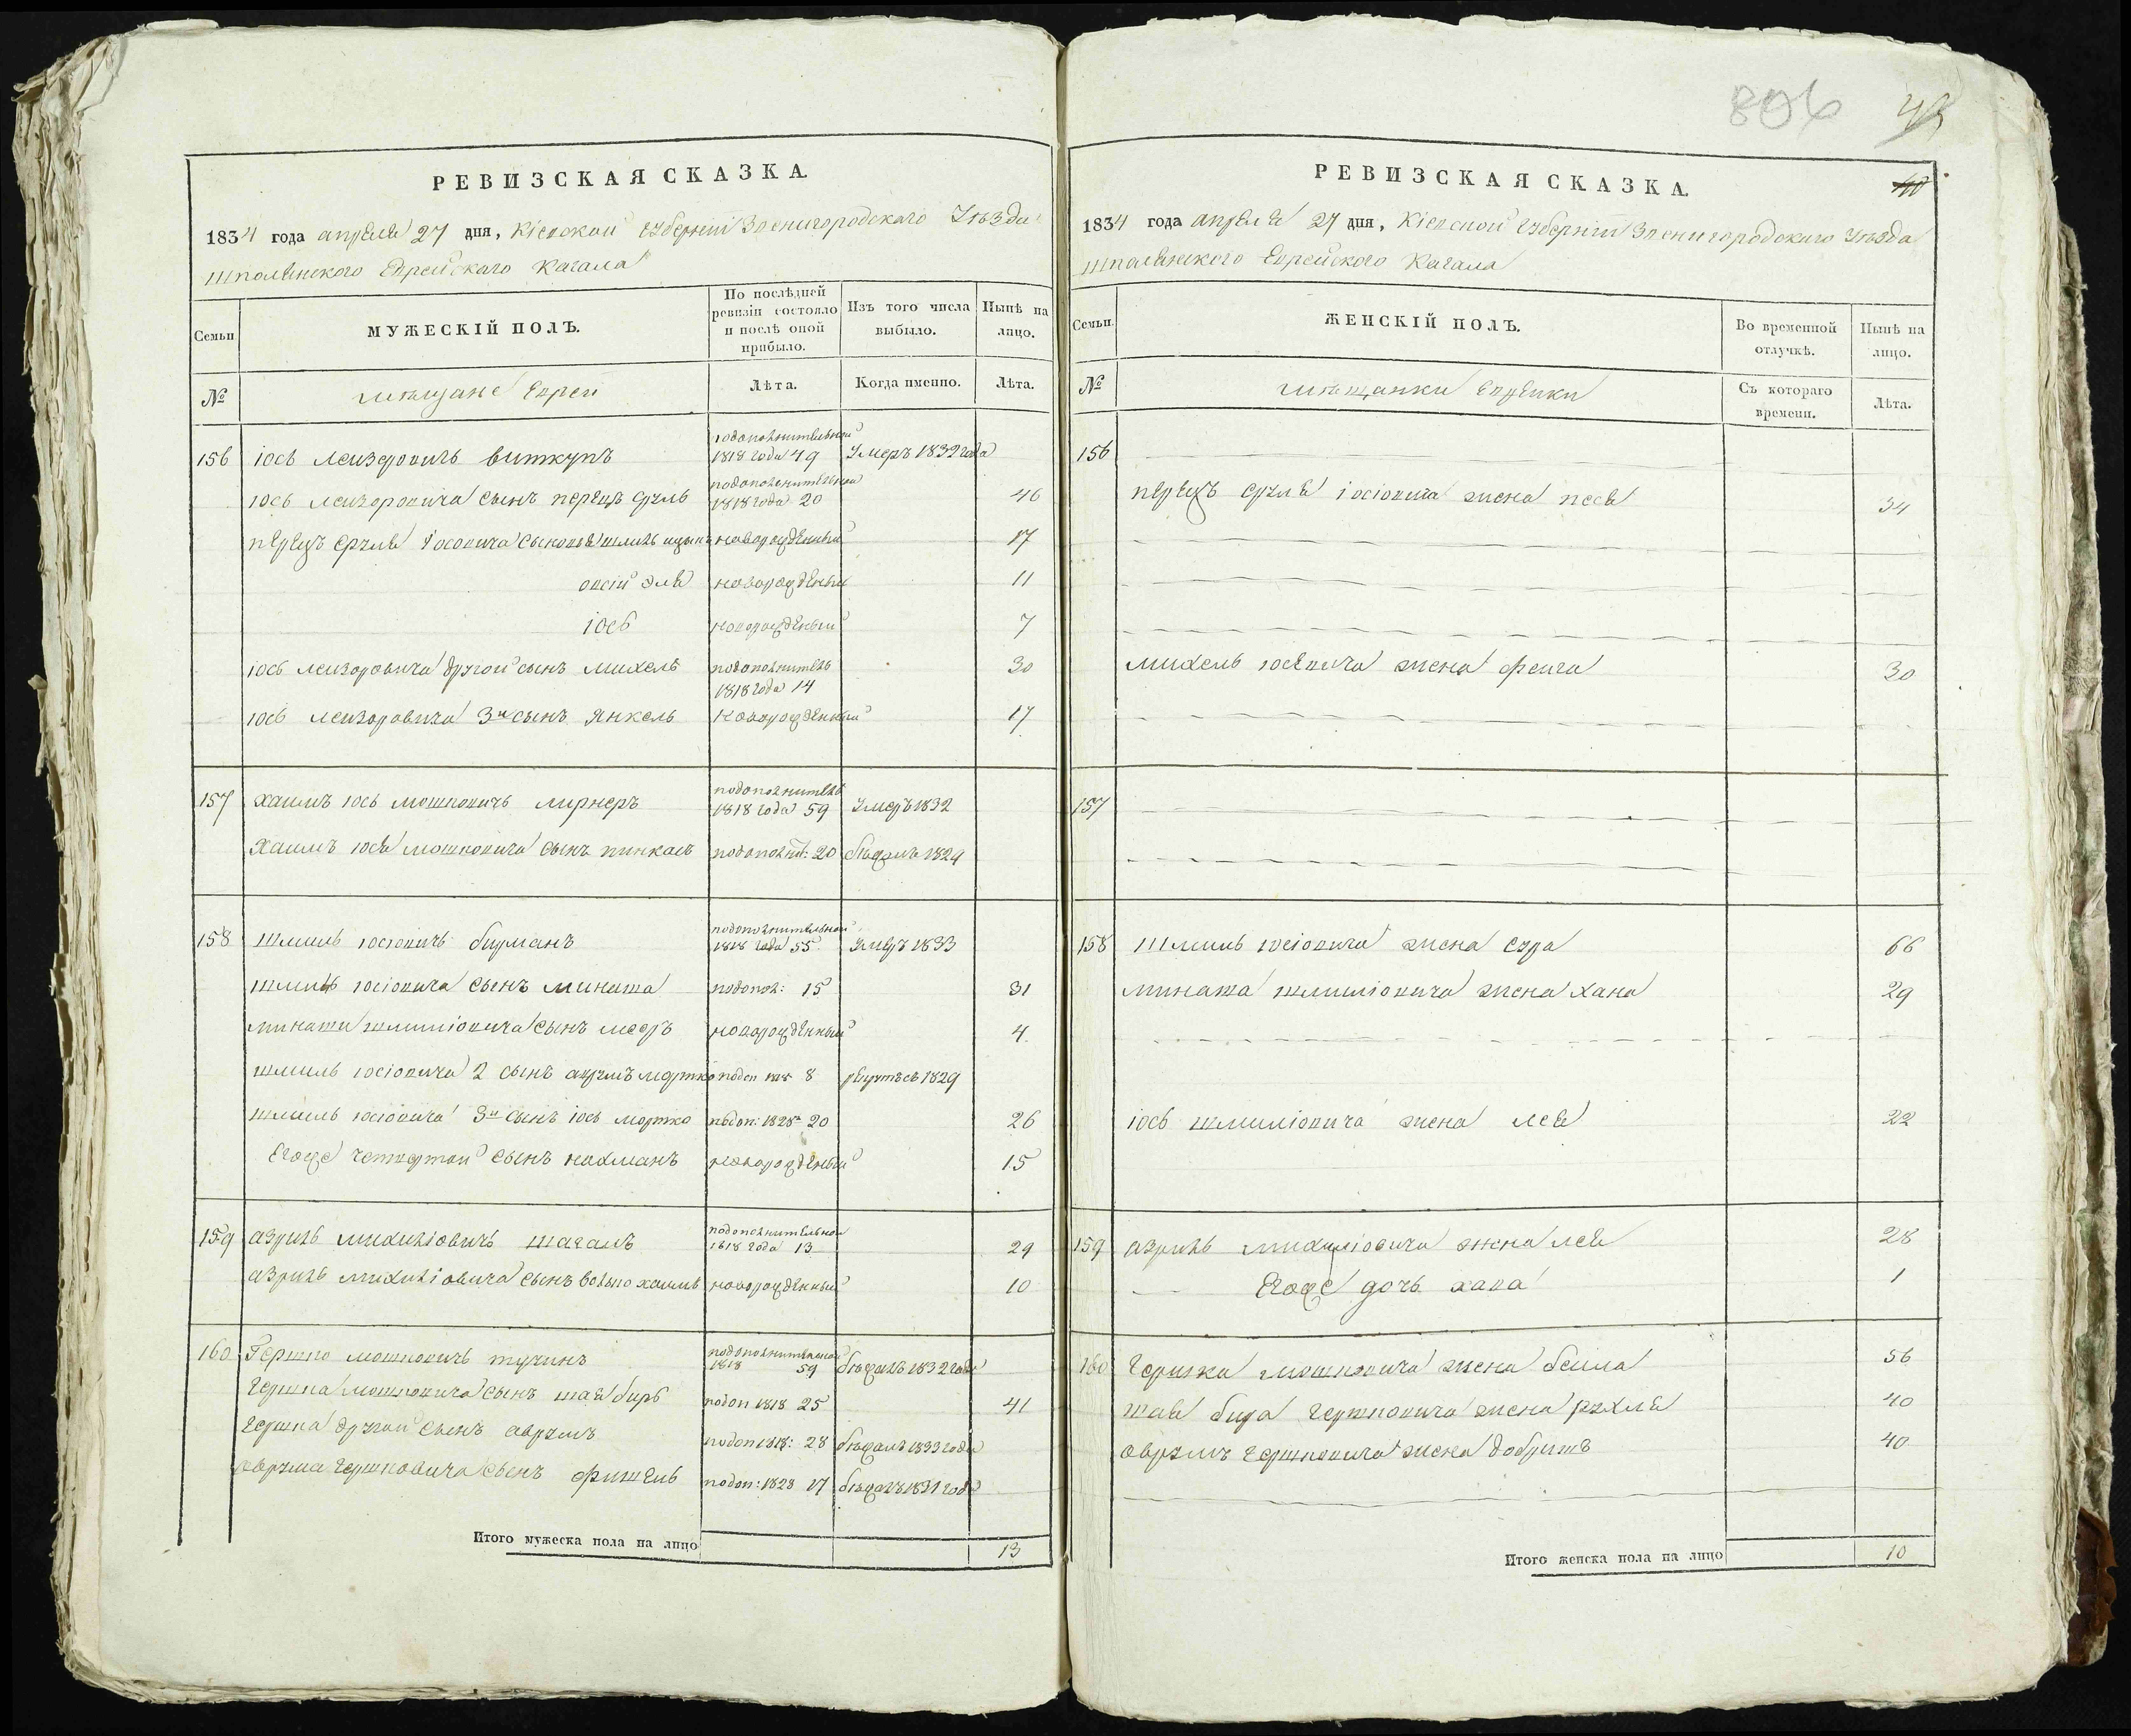 806
РЕВИЗСКАЯ СКАЗКА.
1834 года апреля 27 дня, Кіевской Губерніи Звенигородскаго Уѣзда
шполянского Еврейскаго Кагала
Семьи
МУЖЕСКІЙ ПОЛЪ.
По послѣдней
ревизіи состояло
и послѣ оной
прибыло.
Изъ того числа
выбыло.
Нынѣ на
лицо.
№
мѣщане Евреи
Лѣта.
Когда именно.
Лѣта.
подополнительной
156 іось Лейзеровичь виткупъ 1818 года 49 Умеръ 1832 года
подополнительной
іось лейзоровича сынъ перецъ сруль 1818 года 20 46
перецъ сруля іосовича сыновья шмиль ицыкъ новорожденный 17
овсій эля новорожденый 11
іось новорожденый 7
іось лейзоровича другой сынъ михель подополнитель 30
1818 года 14
іось лейзоровича 3й сынъ Янкель Новорожденный 17
подополнитель
157 хаимъ іось мошковичъ лирнеръ 1818 года 59 Умеръ 1832
Хаимъ іося мошковича сынъ пинкасъ подополнит: 20 бѣжалъ 1829
подополнительной
158 шмиль іосіовичъ бирманъ 1818 года 55 Умеръ 1833
шмиль іосіовича сынъ минаша подопол: 15 31
минаши шмиліовича сынъ мееръ новорожденный 4
шмиль іосіовича 2 сынъ аврумъ мортко подоп 8 рекрутъ съ 1829
шмиль іосіовича 3й сынъ іось мортко подоп: 1828 20 26
Егоже четвертой сынъ нахманъ новорожденый 15
подополнительной
159 азриль михиліовичъ шагалъ 1818 года 13 29
азриль михиліовича сынъ волько хаимъ новорожденный 10
подополнительной
160 Гершко мошковичъ тучинъ 1818 59 бѣжалъ 1832 года
Гершка мошковича сынъ шая биръ подоп 1818 25 41
Гершка другой сынъ аврумъ подоп 1818: 28 бѣжалъ 1833 года
аврума Гершковича сынъ фишель подоп: 1828 17 бѣжалъ 1831 года
Итого мужеска пола на лицо 13
РЕВИЗСКАЯ СКАЗКА.
1834 года апреля 27 дня, Кіевской Губерніи Звенигородскаго Уѣзда
шполянского Еврейского Кагала
Семьи.
ЖЕНСКІЙ ПОЛЪ.
Во временной
отлучкѣ.
Нынѣ на
лицо.
№
мѣщанки Еврейки
Съ котораго
времени.
Лѣта.
156
перецъ сруля іосіовича жена песя 34
михель іосевича жена фейга 30
157
158 Шмиль іосіовича жена сура 66
минаша шмиліовича жена Хана 29
іось шмиліовича жена лея 22
159 азриль михиліовича жена лея 28
Егоже дочь хава 1
160 Гершка мошковича жена бейла 56
шая бира Гершковича жена рухля 40
аврумъ Гершковича жена добришъ 40
Итого женска пола на лицо 10